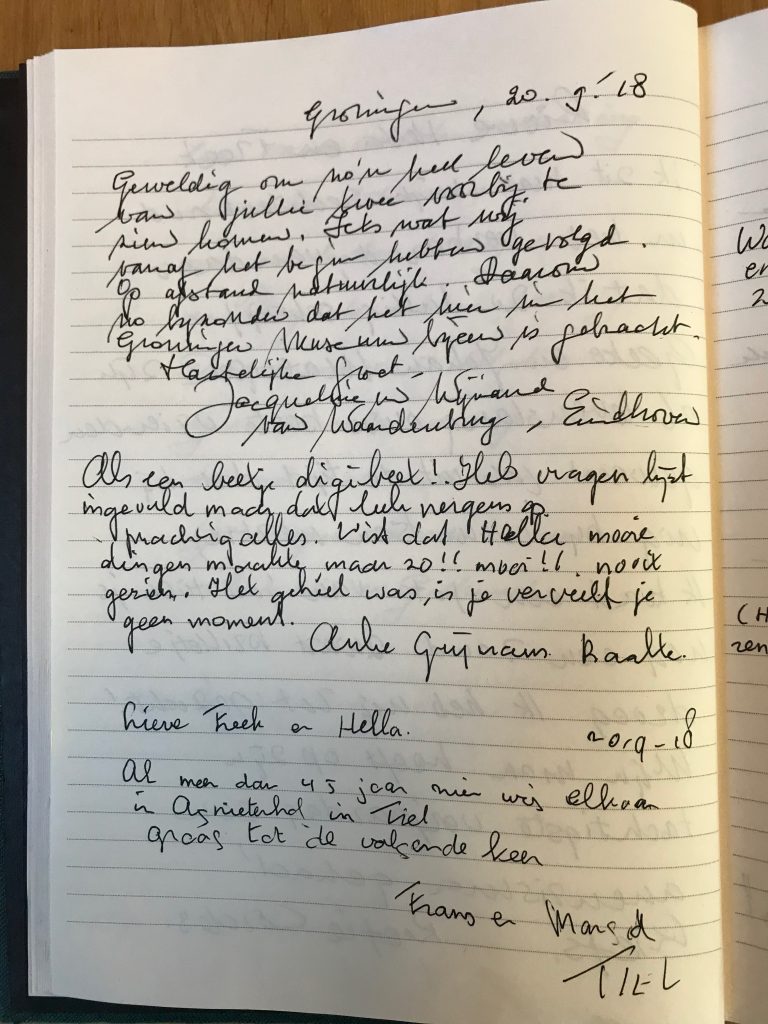 Groningen, 20.9.'18
Geweldig om zo'n heel leven
van jullie twee voorbij te
zien komen. Iets wat wij
vanaf het begin hebben gevolgd.
Op afstand natuurlijk. Daarom
zo bijzonder dat het hier in het
Groninger Museum bijeen is gebracht.
Hartelijke groet,
Jacqueline en Wijnand
van Waardenburg, Eindhoven
Als een beetje digibeet! Heb vragen lijst
ingevuld maar dat leek nergens op.
prachtig alles. Wist dat Hella mooie
dingen maakte maar zo!! mooi!! nooit
gezien. Het geheel was, is je verveelt je
geen moment.
Anke Raalte.
Lieve Freek en Hella.
20-9-18
Al meer dan 45 jaar zien wij elkaar
in Agnietenhof in Tiel
graag tot de volgende keer
Frans en Margot
TIEL
Wa
en
2
(H
zen